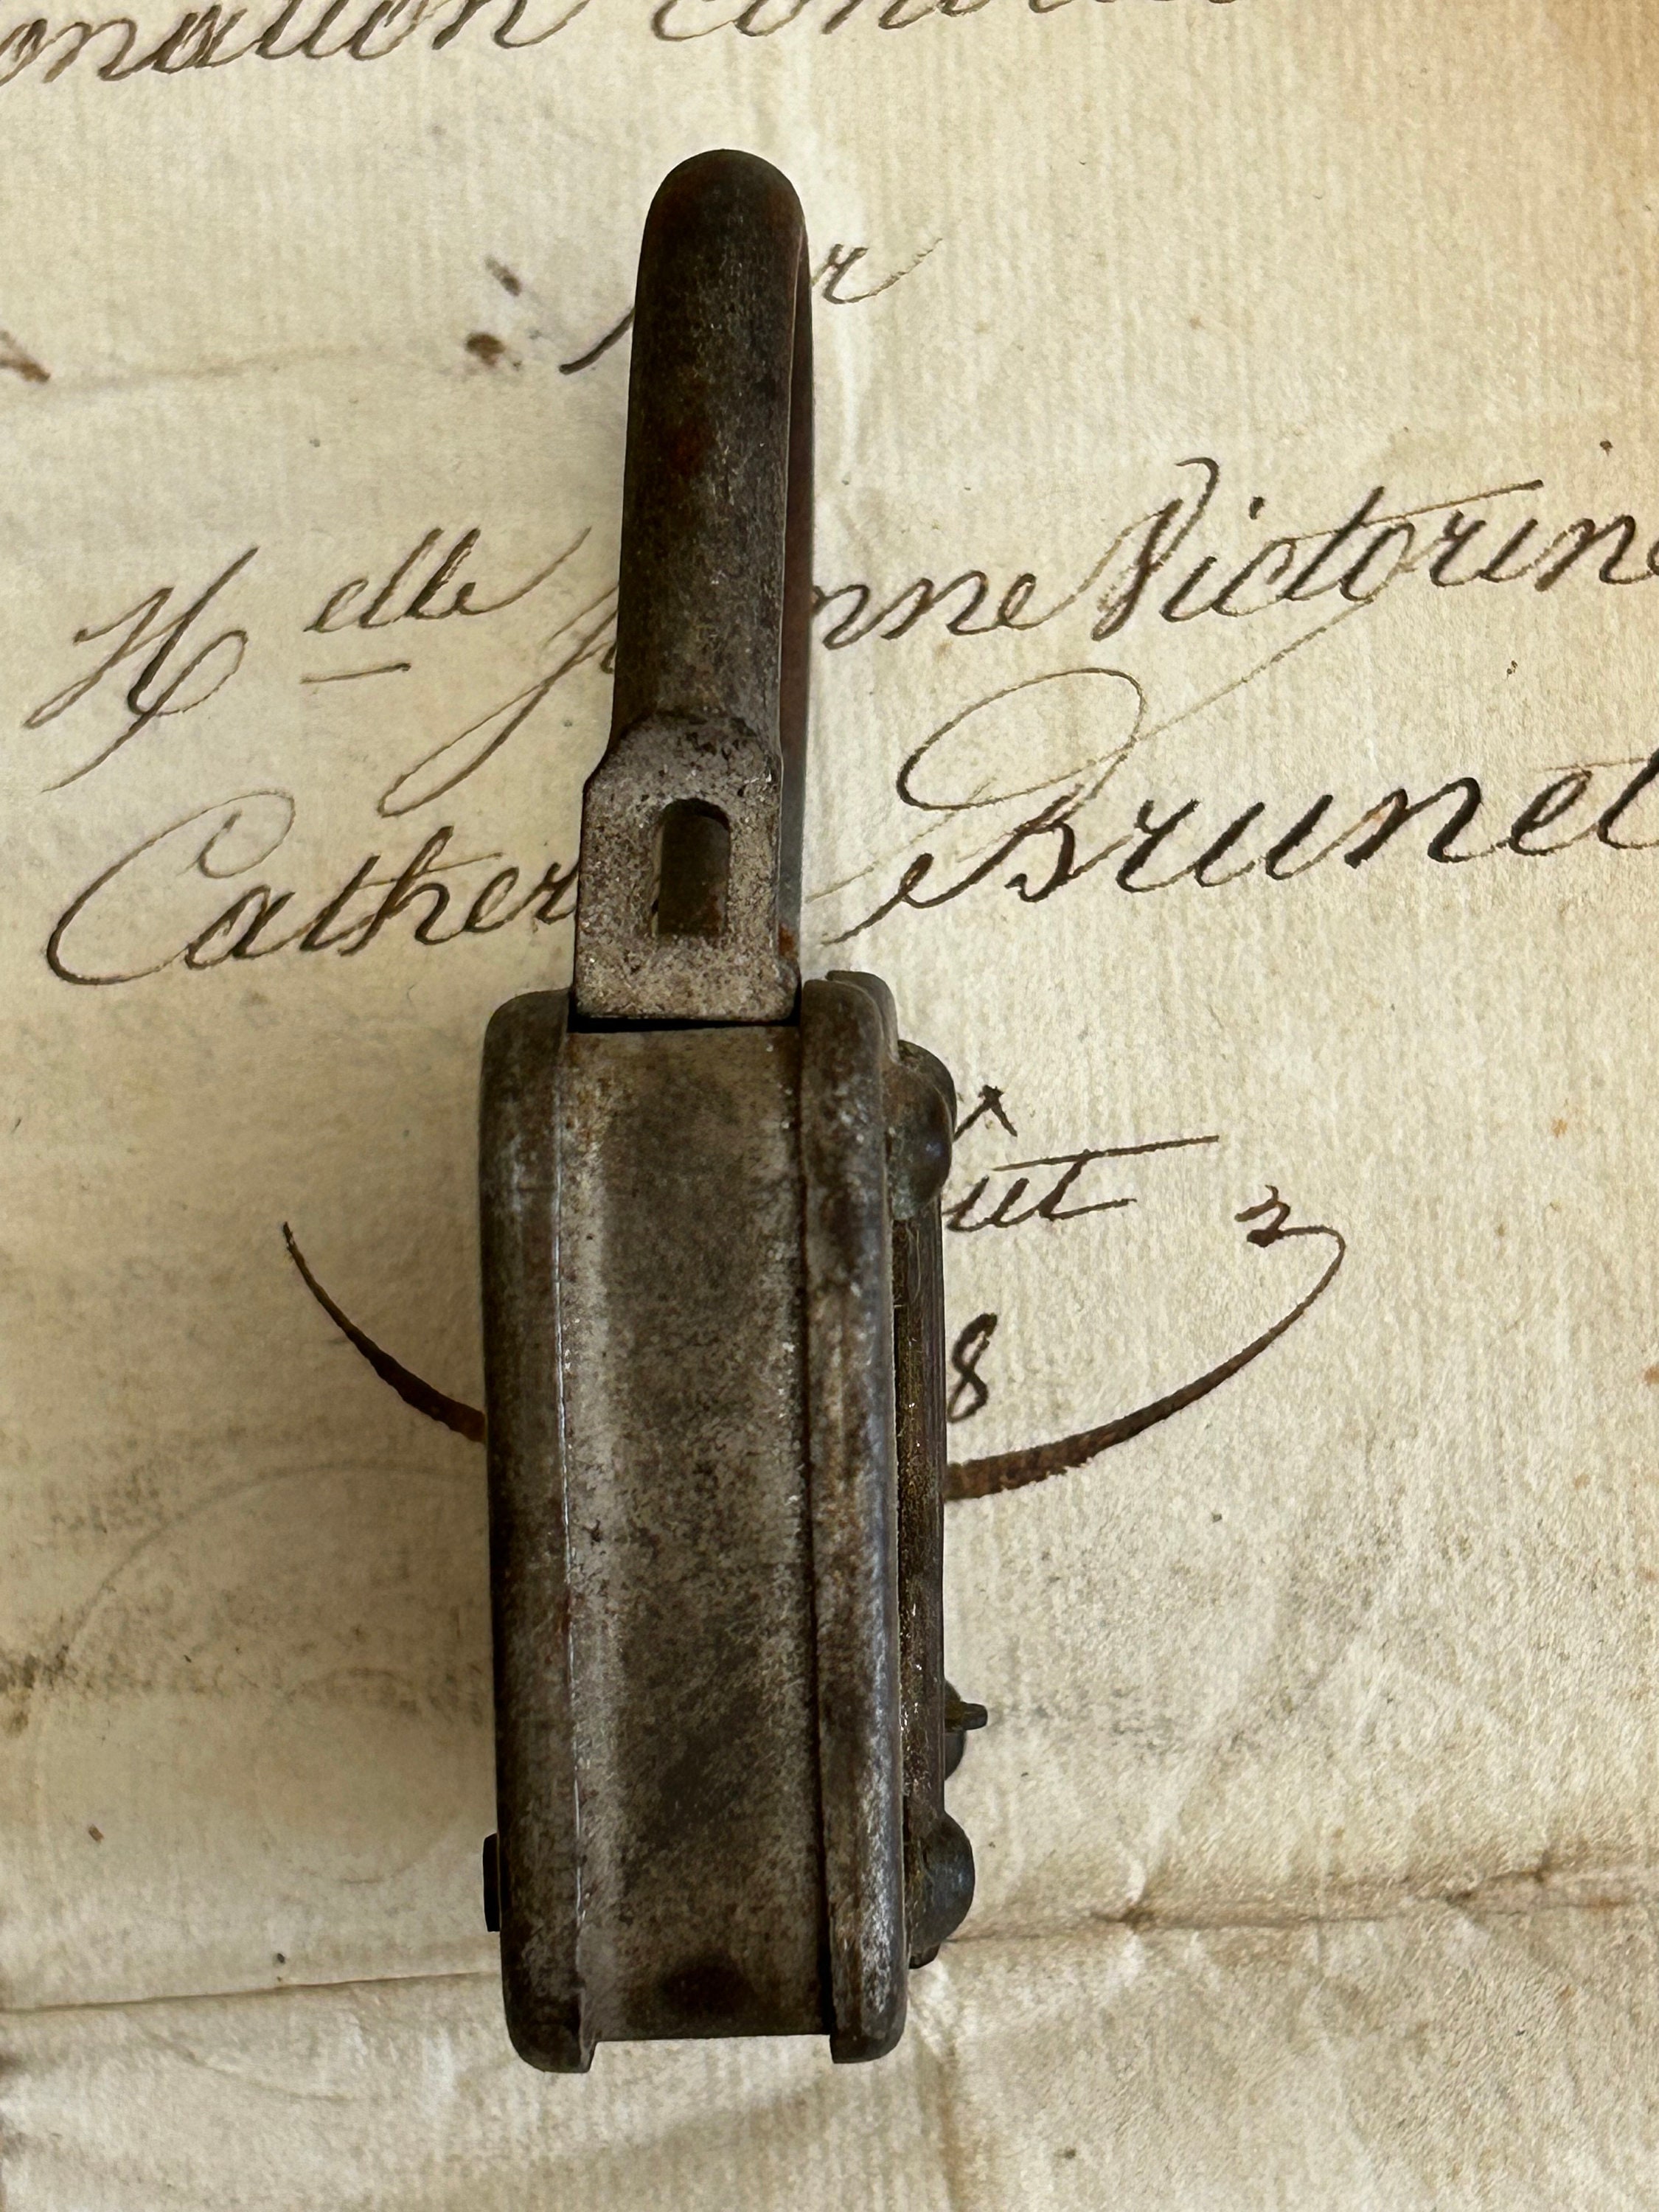 onation contr
r
Melle J nne Victorine
Cather e Brunet
ût
8